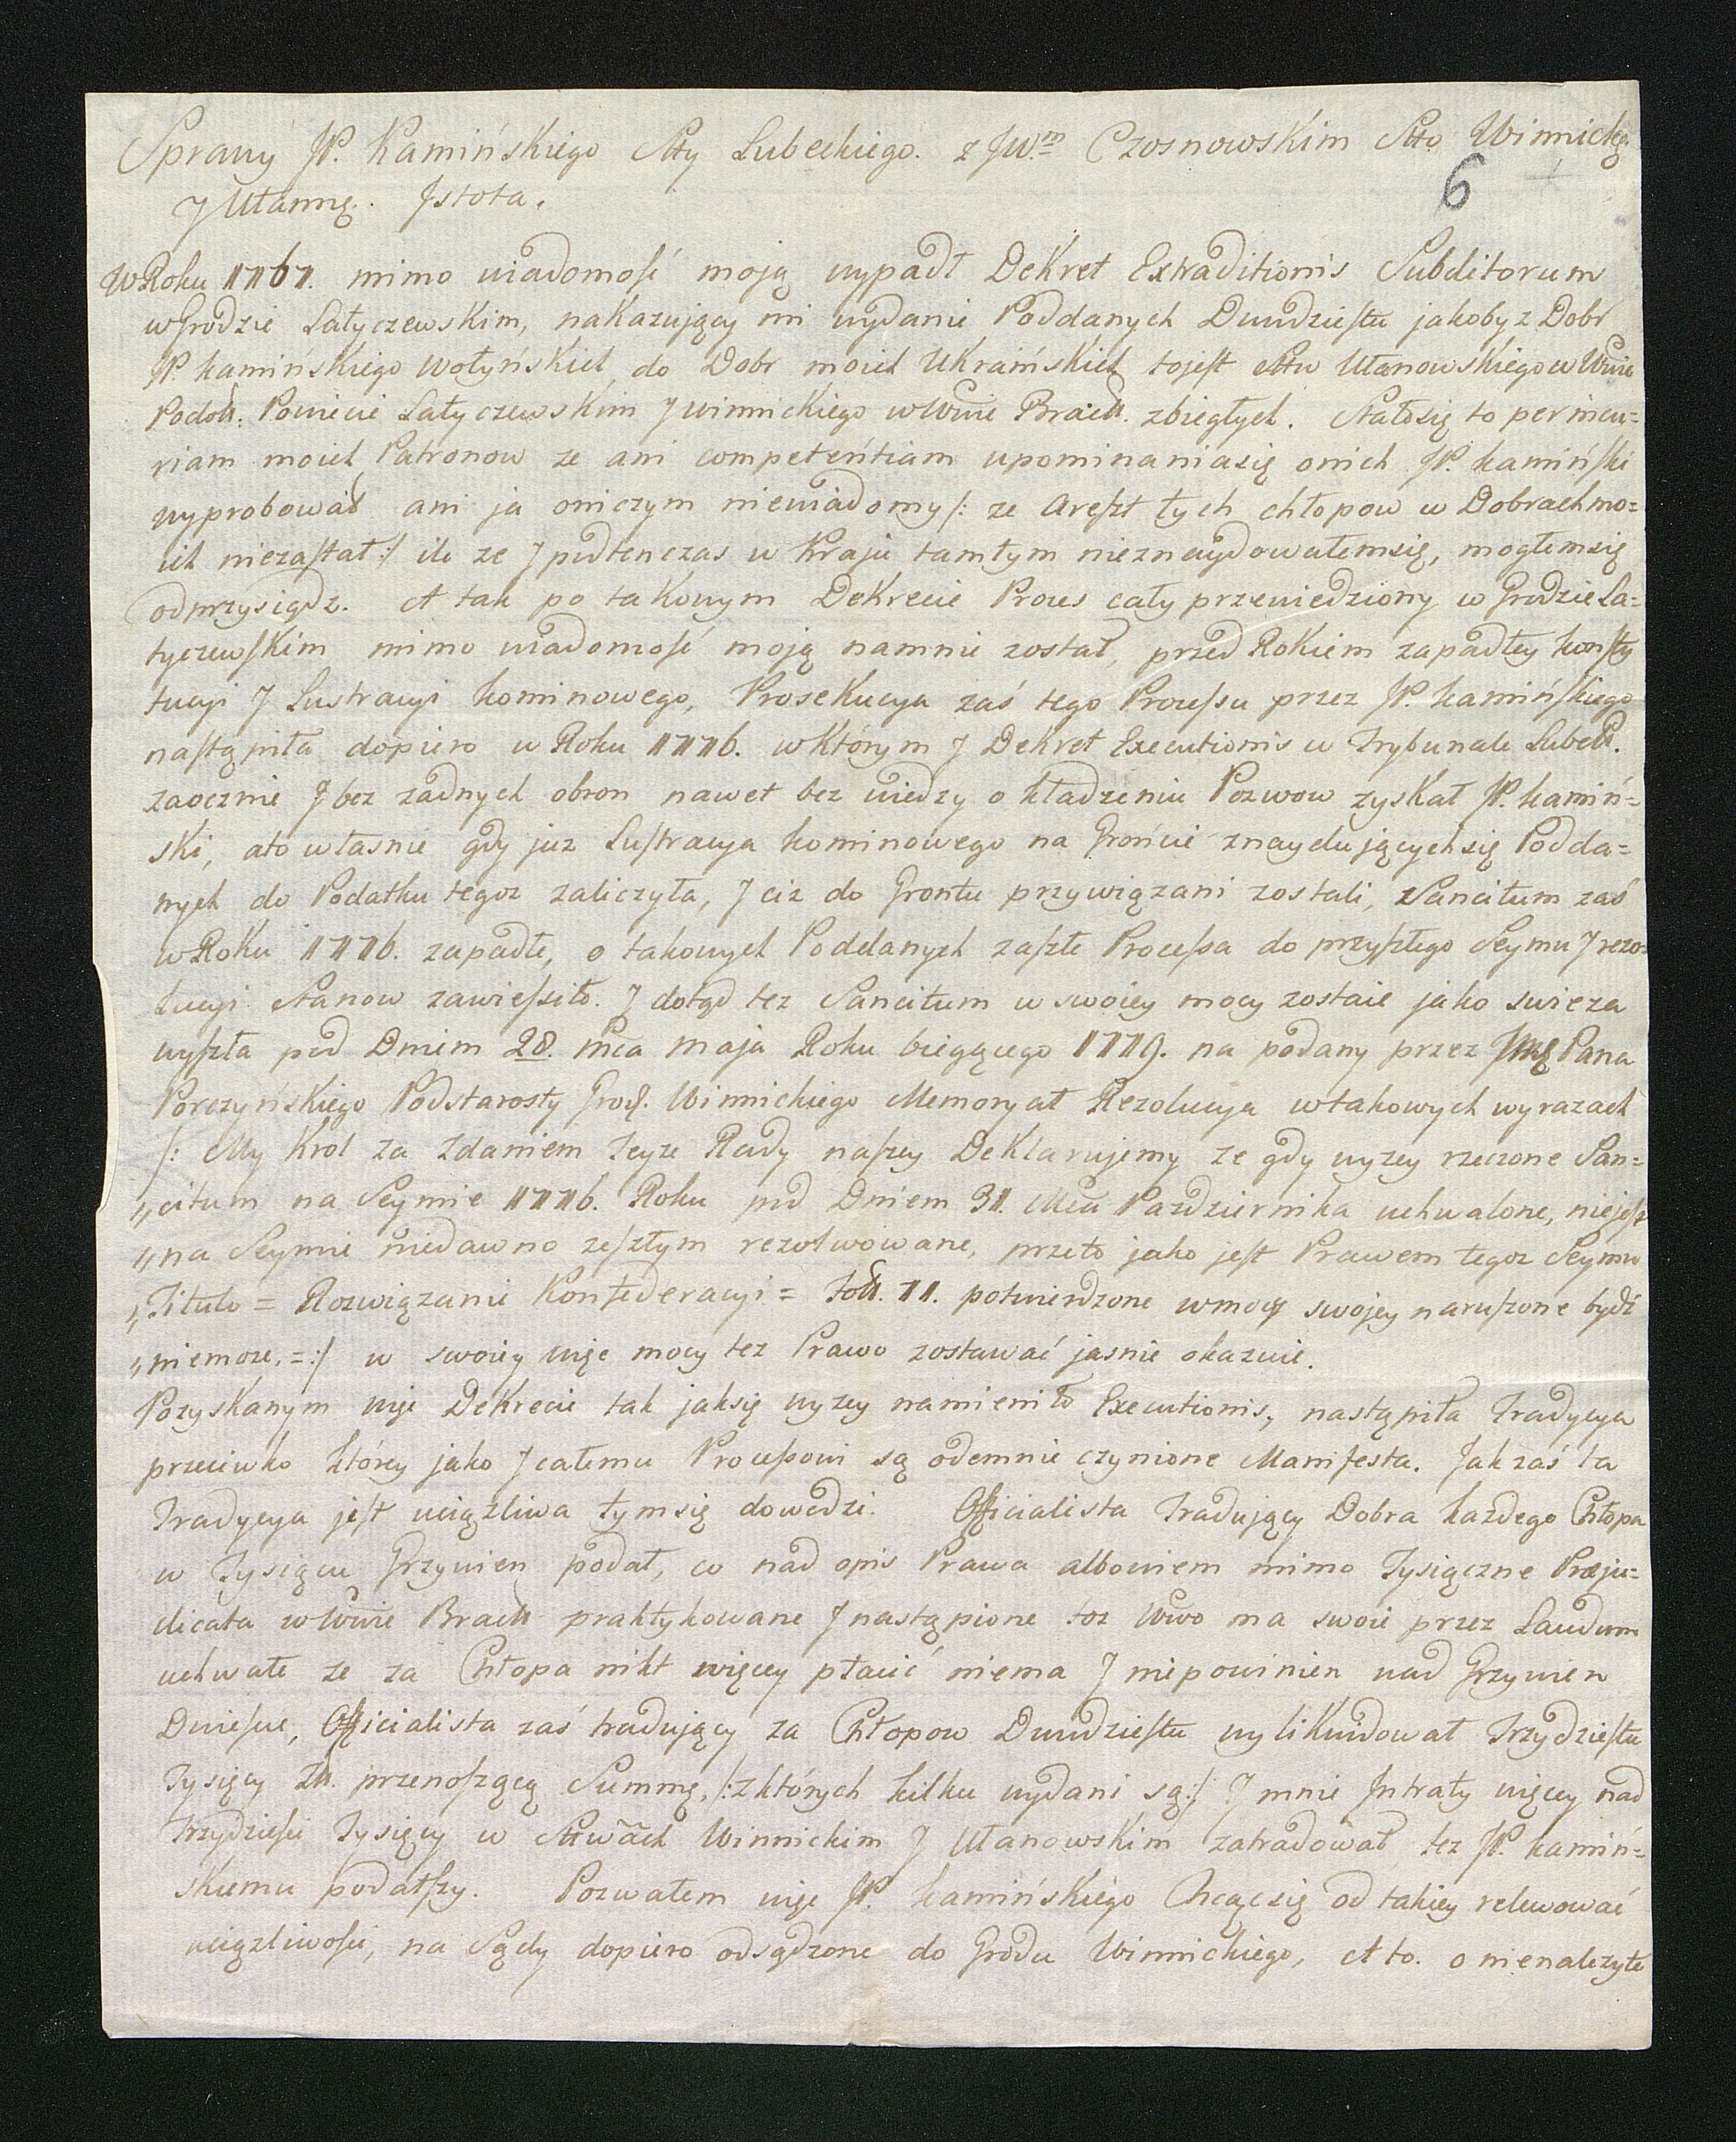 Sprawy JP. Kamińskiego Stty Lubeckiego. z JW.m Czosnowskim Sttą Winnickę.
6
J Ułannę. Jstota.
W Roku 1767. mimo wiadomość moją wypadł DeKret Extraditionis Subditorum
w Grodzie Latyczewskim, naKazujący mi wydanie Poddanych Dwudziestu jakoby z Dobr
JP. Kamińskiego Wołyńskich do Dobr moich UKraińskich tojest Sttw Ułanowskiego w Wwie
Podoll. Powiecie Latyczewskim J winnickiego w Wwie Bracll. zbiegłych. Stałosię to per incu=
riam moich Patronow ze ani competentiam upominaniasię onich JP. Kamiński
wyprobował ani ja oniczym niewiadomy /: ze Areszt tych chłopow w Dobrach mo=
ich niezastał :/ ile ze J podtenczas w Kraju tamtym nieznaydowałemsię, mogłemsię
odprzysiądz. A tak po takowym DeKrecie Proces cały przewiedziony w Grodzie La=
tyczewskim mimo wiadomość moją namnie został, przed Rokiem zapadłey Konsty
tucyi J Lustracyi Kominowego, ProseKucya zaś tego Processu przez JP. Kamińskiego
nastąpiła dopiero w Roku 1776. wKtórym J DeKret Executionis w Trybunale Lubell.
zaocznie J bez zadnych obron nawet bez wiedzy o kładzeniu Pozwow zyskał JP. Kamiń=
ski, ato własnie gdy juz Lustracya Kominowego na Gróńcie znaydujących się Podda=
nych do Podatku tegoz zaliczyła, J ciz do Grontu przywiązani zostali, Sancitum zaś
w Roku 1776. zapadłe, o takowych Poddanych zaszłe Processa do przyszłego Seymu J rezo=
lucyi Stanow zawiesiło. J dotąd tez Sancitum w swoiey mocy zostaie jako swieza
wyszła pod Dniem 28. mca Maja Roku biegącego 1779. na podany przez Jmę Pana
Porczyńskiego Podstarosty Grod. Winnickiego Memoryał Rezolucya wtakowych wyrazach
/: My Krol za Zdaniem Teyze Rady naszey DeKlarujemy ze gdy wyzey rzeczone San=
„citum na Seymie 1776. Roku pod Dniem 31. Mca Pazdziernika uchwalone, niejest
„na Seymie niedawno zeszłym rezolwowane, przeto jako jest Prawem tegoz Seymu
„Titulo = Rozwiązanie Konfederacyi = foll. 11. potwierdzone wmocy swojey naruszone bydź
„niemoze, =:/ w swoiey więc mocy tez Prawo zostawać jasnie okazuie.
Pozyskanym więc DeKrecie tak jaksię wyzey namieniło Executionis, nastąpiła Tradycya
przeciwko którey jako J całemu Processowi są odemnie czynione Manifesta. Jak zaś ta
Tradycya jest uciązliwa tymsię dowodzi. Officialista Tradujący Dobra kazdego Chłopa
w Tysiącu Grzywien podał, co nad opis Prawa albowiem mimo Tysiączne Præju=
dicata w Wwie Bracll praktykowane J nastąpione toz Wwo ma swoie przez Laudum
uchwałe ze za Chłopa nikt więcey płacić niema J niepowinien nad Grzywien
Dwiescie, Officialista zaś tradujący za Chłopow Dwudziestu wyliKwidował Trzydziestu
Tysięcy Zll. przenoszącą Summę, /: z których kilku wydani są :/ J mnie Jntraty więcey nad
trzydzieści Tysięcy w Sttwach Winnickim J Ułanowskim zatradował tez JP. Kamiń=
skiemu podałszy. Pozwałem więc JP. Kamińskiego Chcąc się od takiey relewować
uciązliwości, na Sądy dopiero odsądzone do Grodu Winnickiego, A to. o nienalezyte